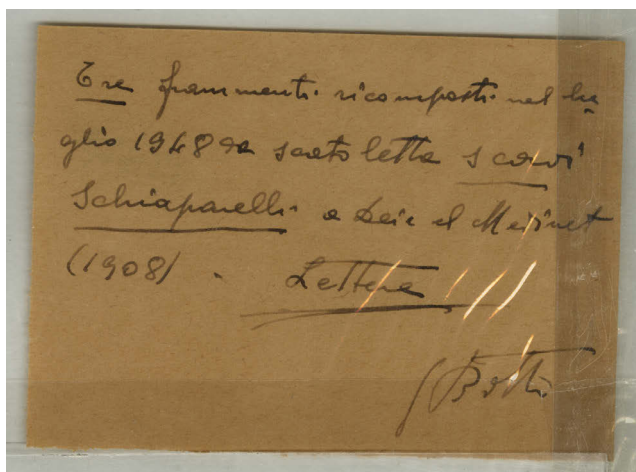 Tre frammenti ricomposti nel lu-
glio 1948 da scatoletta scavi
Schiaparelli a Deir el Medinet
(1908) - Lettere
G Botti